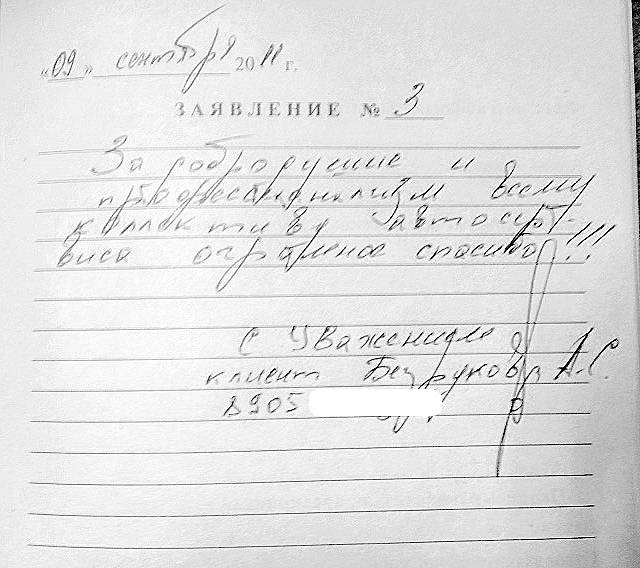 «09» сентября 2011 г.
ЗАЯВЛЕНИЕ № 3
За добродушие и
профессионализм всему
коллективу автосер-
виса огромное спасибо!!!
С Уважением
клиент Безруков А.С.
8905